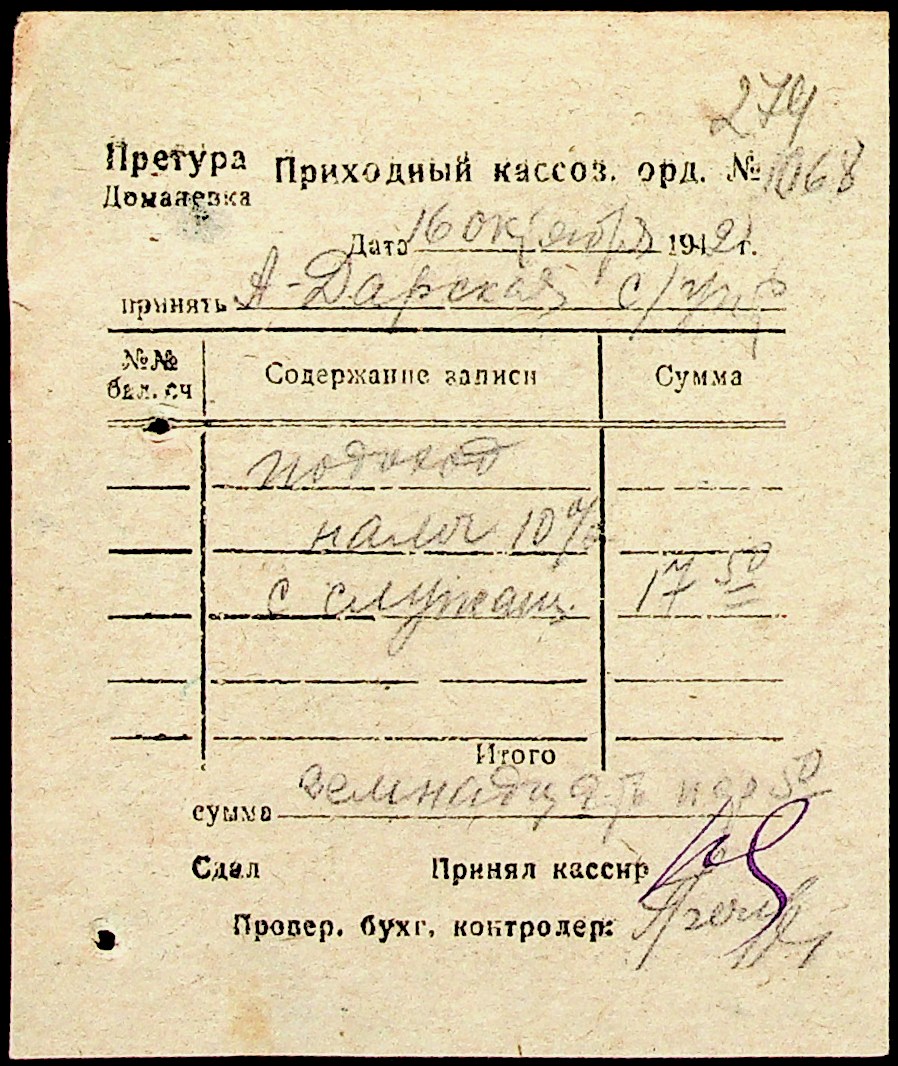 279
Претура Приходный кассов. орд. № 1068
Доманевка
Дата 16 октября 1942 г.
принять А-Дарская с/упр
№№ бал. сч Содержание записи Сумма
подоход
налог 10%
с служащ. 17 50
Итого
сумма семнадцать 50
Сдал Принял кассир
Провер. бухг. контролер: